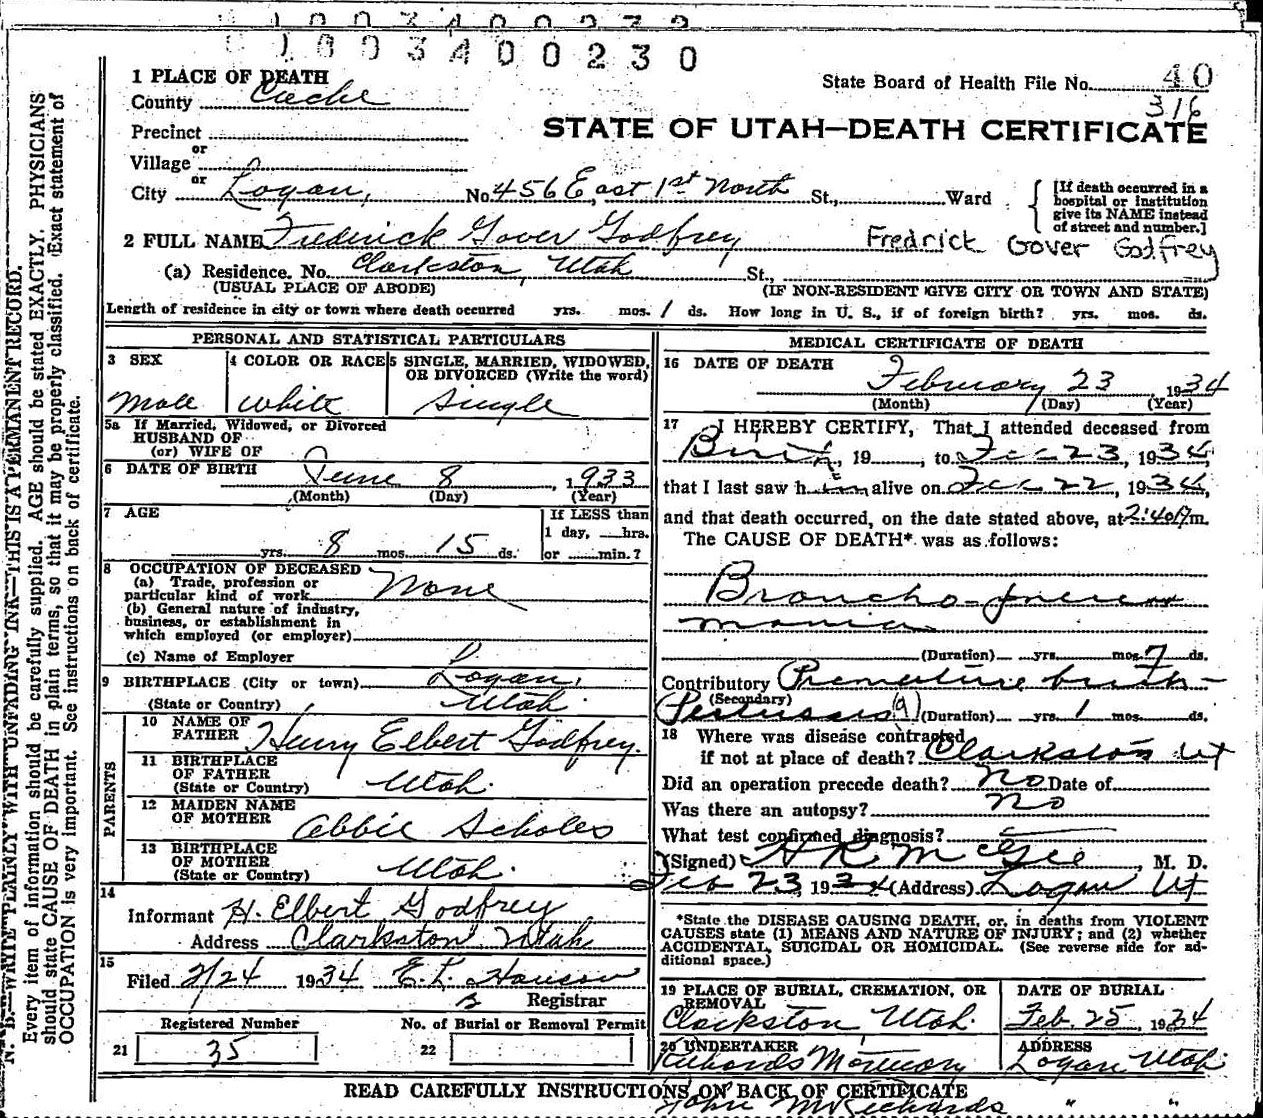 1003400230
1 PLACE OF DEATH
State Board of Health File No. 40
County Cache
316
Precinct
STATE OF UTAH—DEATH CERTIFICATE
or
Village
or
City Logan, No. 456 East 1st North St., Ward
[If death occurred in a hospital or institution give its NAME instead of street and number.]
2 FULL NAME Frederick Gover Godfrey Fredrick Gover Godfrey
(a) Residence. No. Clarkston, Utah St.,
(USUAL PLACE OF ABODE) (IF NON-RESIDENT GIVE CITY OR TOWN AND STATE)
Length of residence in city or town where death occurred yrs. mos. 1 ds. How long in U. S., if of foreign birth? yrs. mos. ds.
PERSONAL AND STATISTICAL PARTICULARS
3 SEX 4 COLOR OR RACE 5 SINGLE, MARRIED, WIDOWED, OR DIVORCED (Write the word)
Male White Single
5a If Married, Widowed, or Divorced
HUSBAND OF
(or) WIFE OF
6 DATE OF BIRTH June 8, 1933
(Month) (Day) (Year)
7 AGE If LESS than
1 day, hrs.
yrs. 8 mos. 15 ds. or min.?
8 OCCUPATION OF DECEASED
(a) Trade, profession or
particular kind of work None
(b) General nature of industry,
business, or establishment in
which employed (or employer)
(c) Name of Employer
9 BIRTHPLACE (City or town) Logan,
(State or Country) Utah.
PARENTS
10 NAME OF
FATHER Henry Elbert Godfrey.
11 BIRTHPLACE
OF FATHER
(State or Country) Utah.
12 MAIDEN NAME
OF MOTHER Abbie Scholes
13 BIRTHPLACE
OF MOTHER
(State or Country) Utah.
14
Informant H. Elbert Godfrey
Address Clarkston Utah
15
Filed 2/24 1934 E. L. Hanson
Registrar
Registered Number No. of Burial or Removal Permit
21 35 22
MEDICAL CERTIFICATE OF DEATH
16 DATE OF DEATH
February 23 1934
(Month) (Day) (Year)
17 I HEREBY CERTIFY, That I attended deceased from
Birth, 19, to Feb 23, 1934,
that I last saw him alive on Feb 22, 1934,
and that death occurred, on the date stated above, at 2:40 P.m.
The CAUSE OF DEATH* was as follows:
Broncho-pneu
monia
(Duration) yrs. mos. 7 ds.
Contributory Premature birth -
(Secondary)
Pertussis (9) (Duration) yrs. 1 mos. ds.
18 Where was disease contracted
if not at place of death? Clarkston Ut
Did an operation precede death? No Date of
Was there an autopsy? No
What test confirmed diagnosis?
(Signed) H R McGee M. D.
Feb 23, 1934 (Address) Logan Ut
*State the DISEASE CAUSING DEATH, or, in deaths from VIOLENT
CAUSES state (1) MEANS AND NATURE OF INJURY; and (2) whether
ACCIDENTAL, SUICIDAL OR HOMICIDAL. (See reverse side for ad-
ditional space.)
19 PLACE OF BURIAL, CREMATION, OR REMOVAL DATE OF BURIAL
Clarkston Utah. Feb. 25, 1934
20 UNDERTAKER ADDRESS
Richards Mortuary Logan Utah.
READ CAREFULLY INSTRUCTIONS ON BACK OF CERTIFICATE
John M Richards " "
N. B.—WRITE PLAINLY WITH UNFADING INK—THIS IS A PERMANENT RECORD.
Every item of information should be carefully supplied. AGE should be stated EXACTLY. PHYSICIANS
should state CAUSE OF DEATH in plain terms, so that it may be properly classified. Exact statement of
OCCUPATION is very important. See instructions on back of certificate.